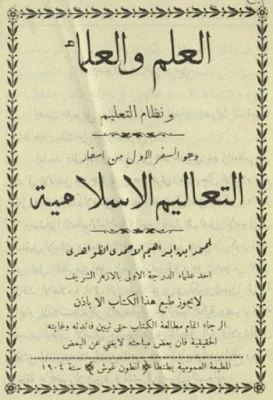 العلم والعلماء
ونظام التعليم
وهو السفر الاول من اسفار
التعاليم الاسلامية
لمحمد ابن ابراهيم الاحمدي الظواهري
احد علماء الدرجة الاولى بالازهر الشريف
لايجوز طبع هذا الكتاب الا باذن
الرجاء اتمام مطالعة الكتاب حتى تبين فائدته وغايته
الحقيقية فان بعض مباحثه لايغني عن البعض
المطبعة العمومية بطنطا * انطون غوش * سنة ١٩٠٤